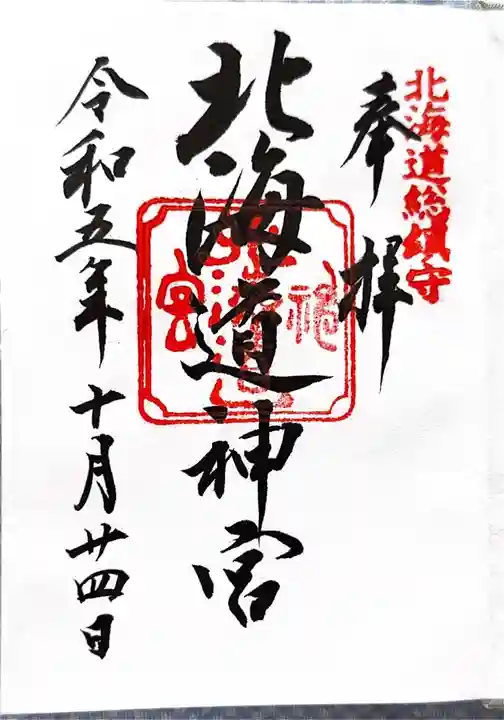 北海道総鎮守
奉拝
北海道神宮
令和五年十月廿四日